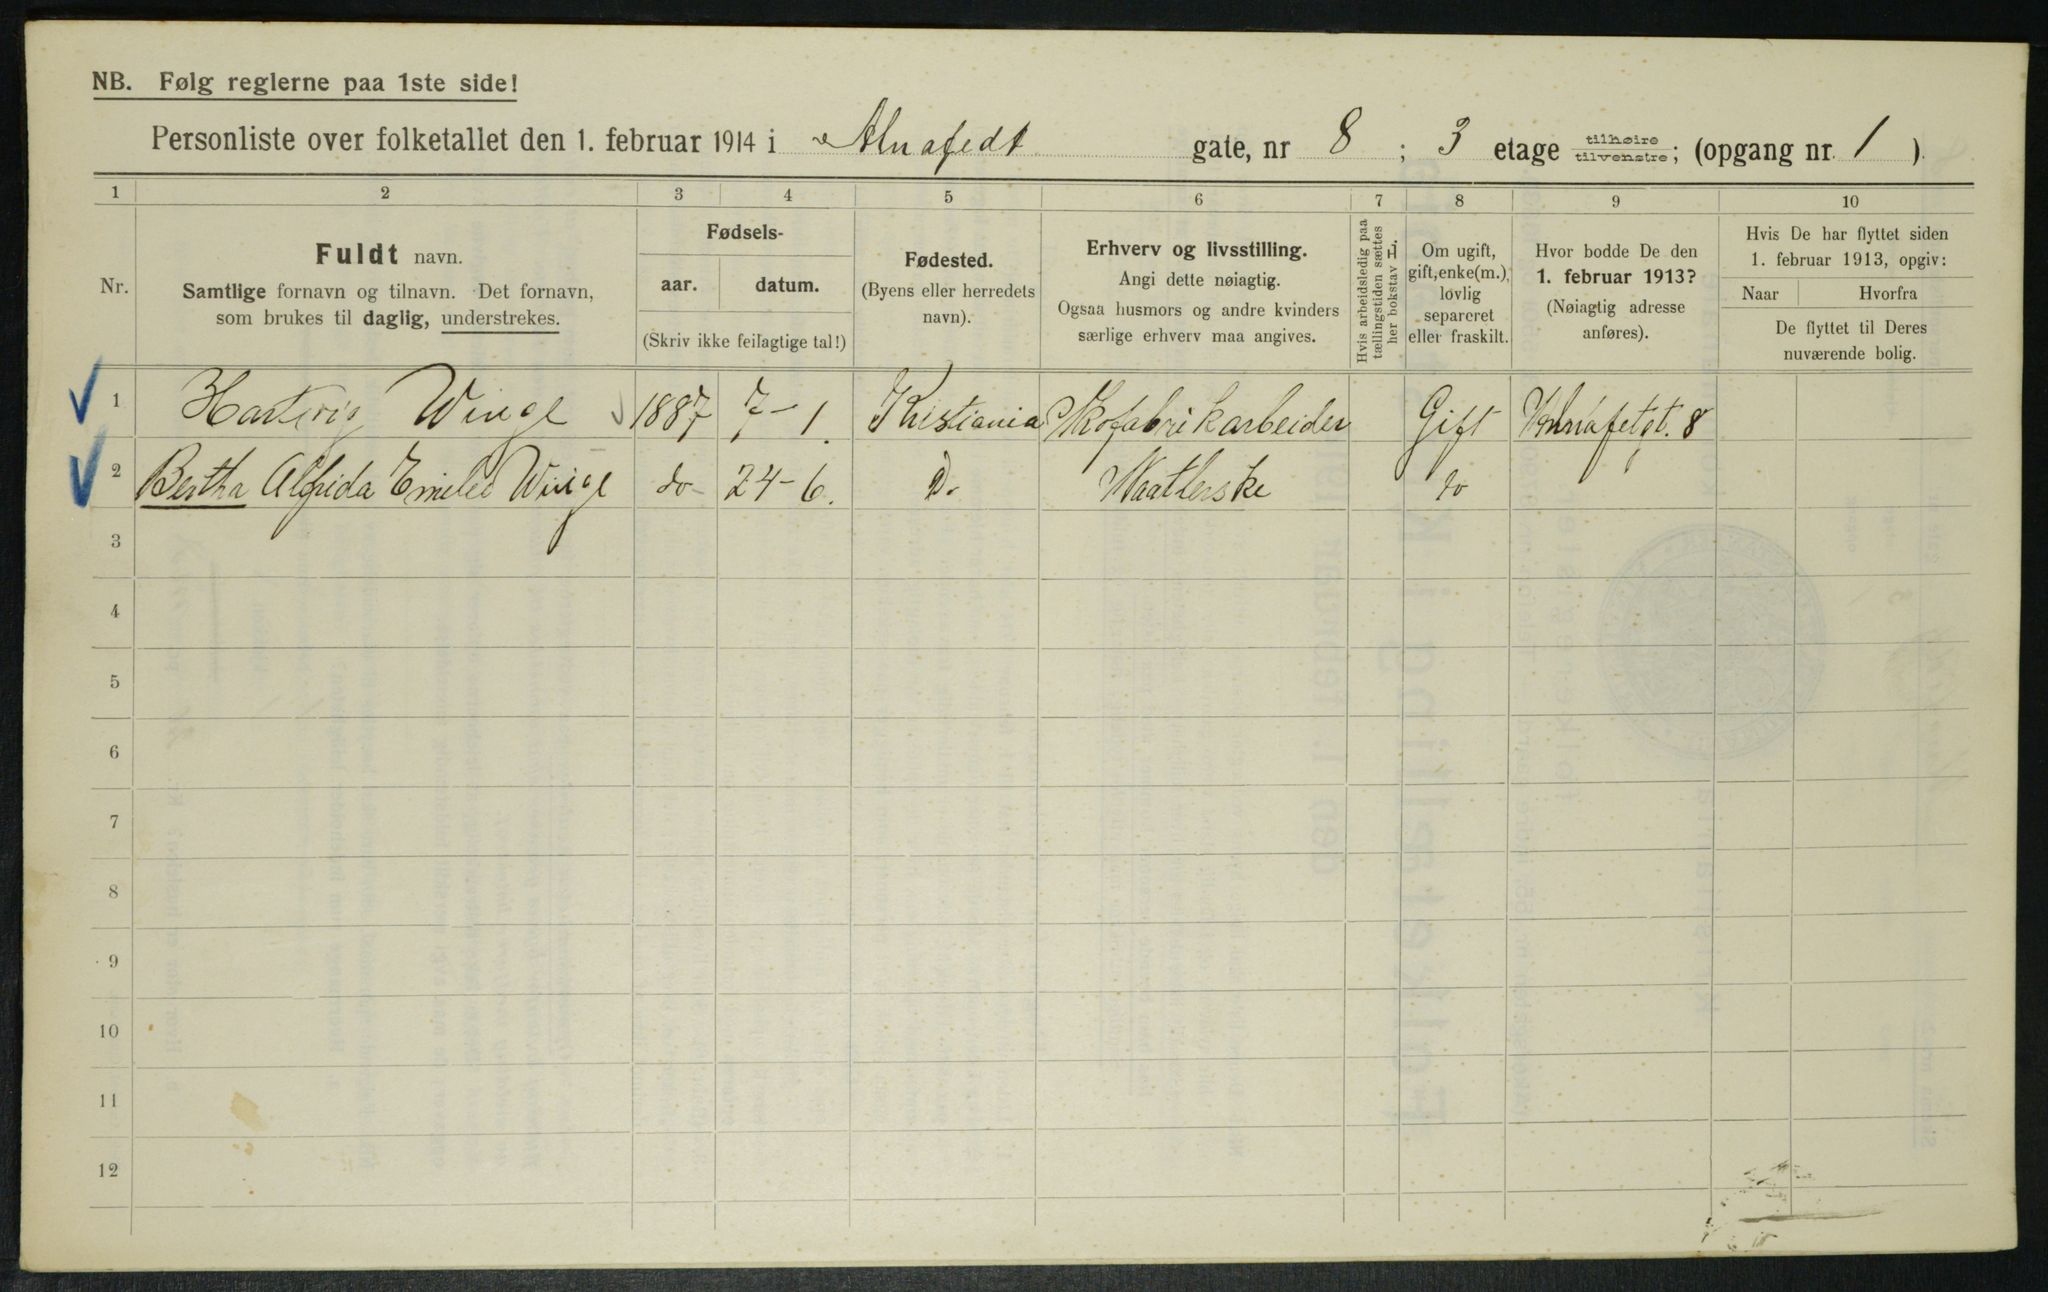 NB. Følg reglerne paa 1ste side!
Personliste over folketallet den 1. februar 1914 i Almafedt gate, nr 8 ; 3 etage tilhøire tilvenstre; (opgang nr. 1 ).
1 2 3 4 5 6 7 8 9 10
Nr.
Fuldt navn.
Samtlige fornavn og tilnavn. Det fornavn,
som brukes til daglig, understrekes.
Fødsels-
aar. datum.
(Skriv ikke feilagtige tal!)
Fødested.
(Byens eller herredets
navn).
Erhverv og livsstilling.
Angi dette nøiagtig.
Ogsaa husmors og andre kvinders
særlige erhverv maa angives.
Hvis arbeidsledig paa
tællingstiden sættes
her bokstav H.
Om ugift,
gift, enke(m.),
lovlig
separeret
eller fraskilt.
Hvor bodde De den
1. februar 1913?
(Nøiagtig adresse
anføres).
Hvis De har flyttet siden
1. februar 1913, opgiv:
Naar Hvorfra
De flyttet til Deres
nuværende bolig.
1 Hartvig Winge 1887 7-1. Kristiania Skofabrikarbeider Gift 8
2 Bertha Alfrida Emilie Winge do 24-6. Do Naatlerske do
3
4
5
6
7
8
9
10
11
12